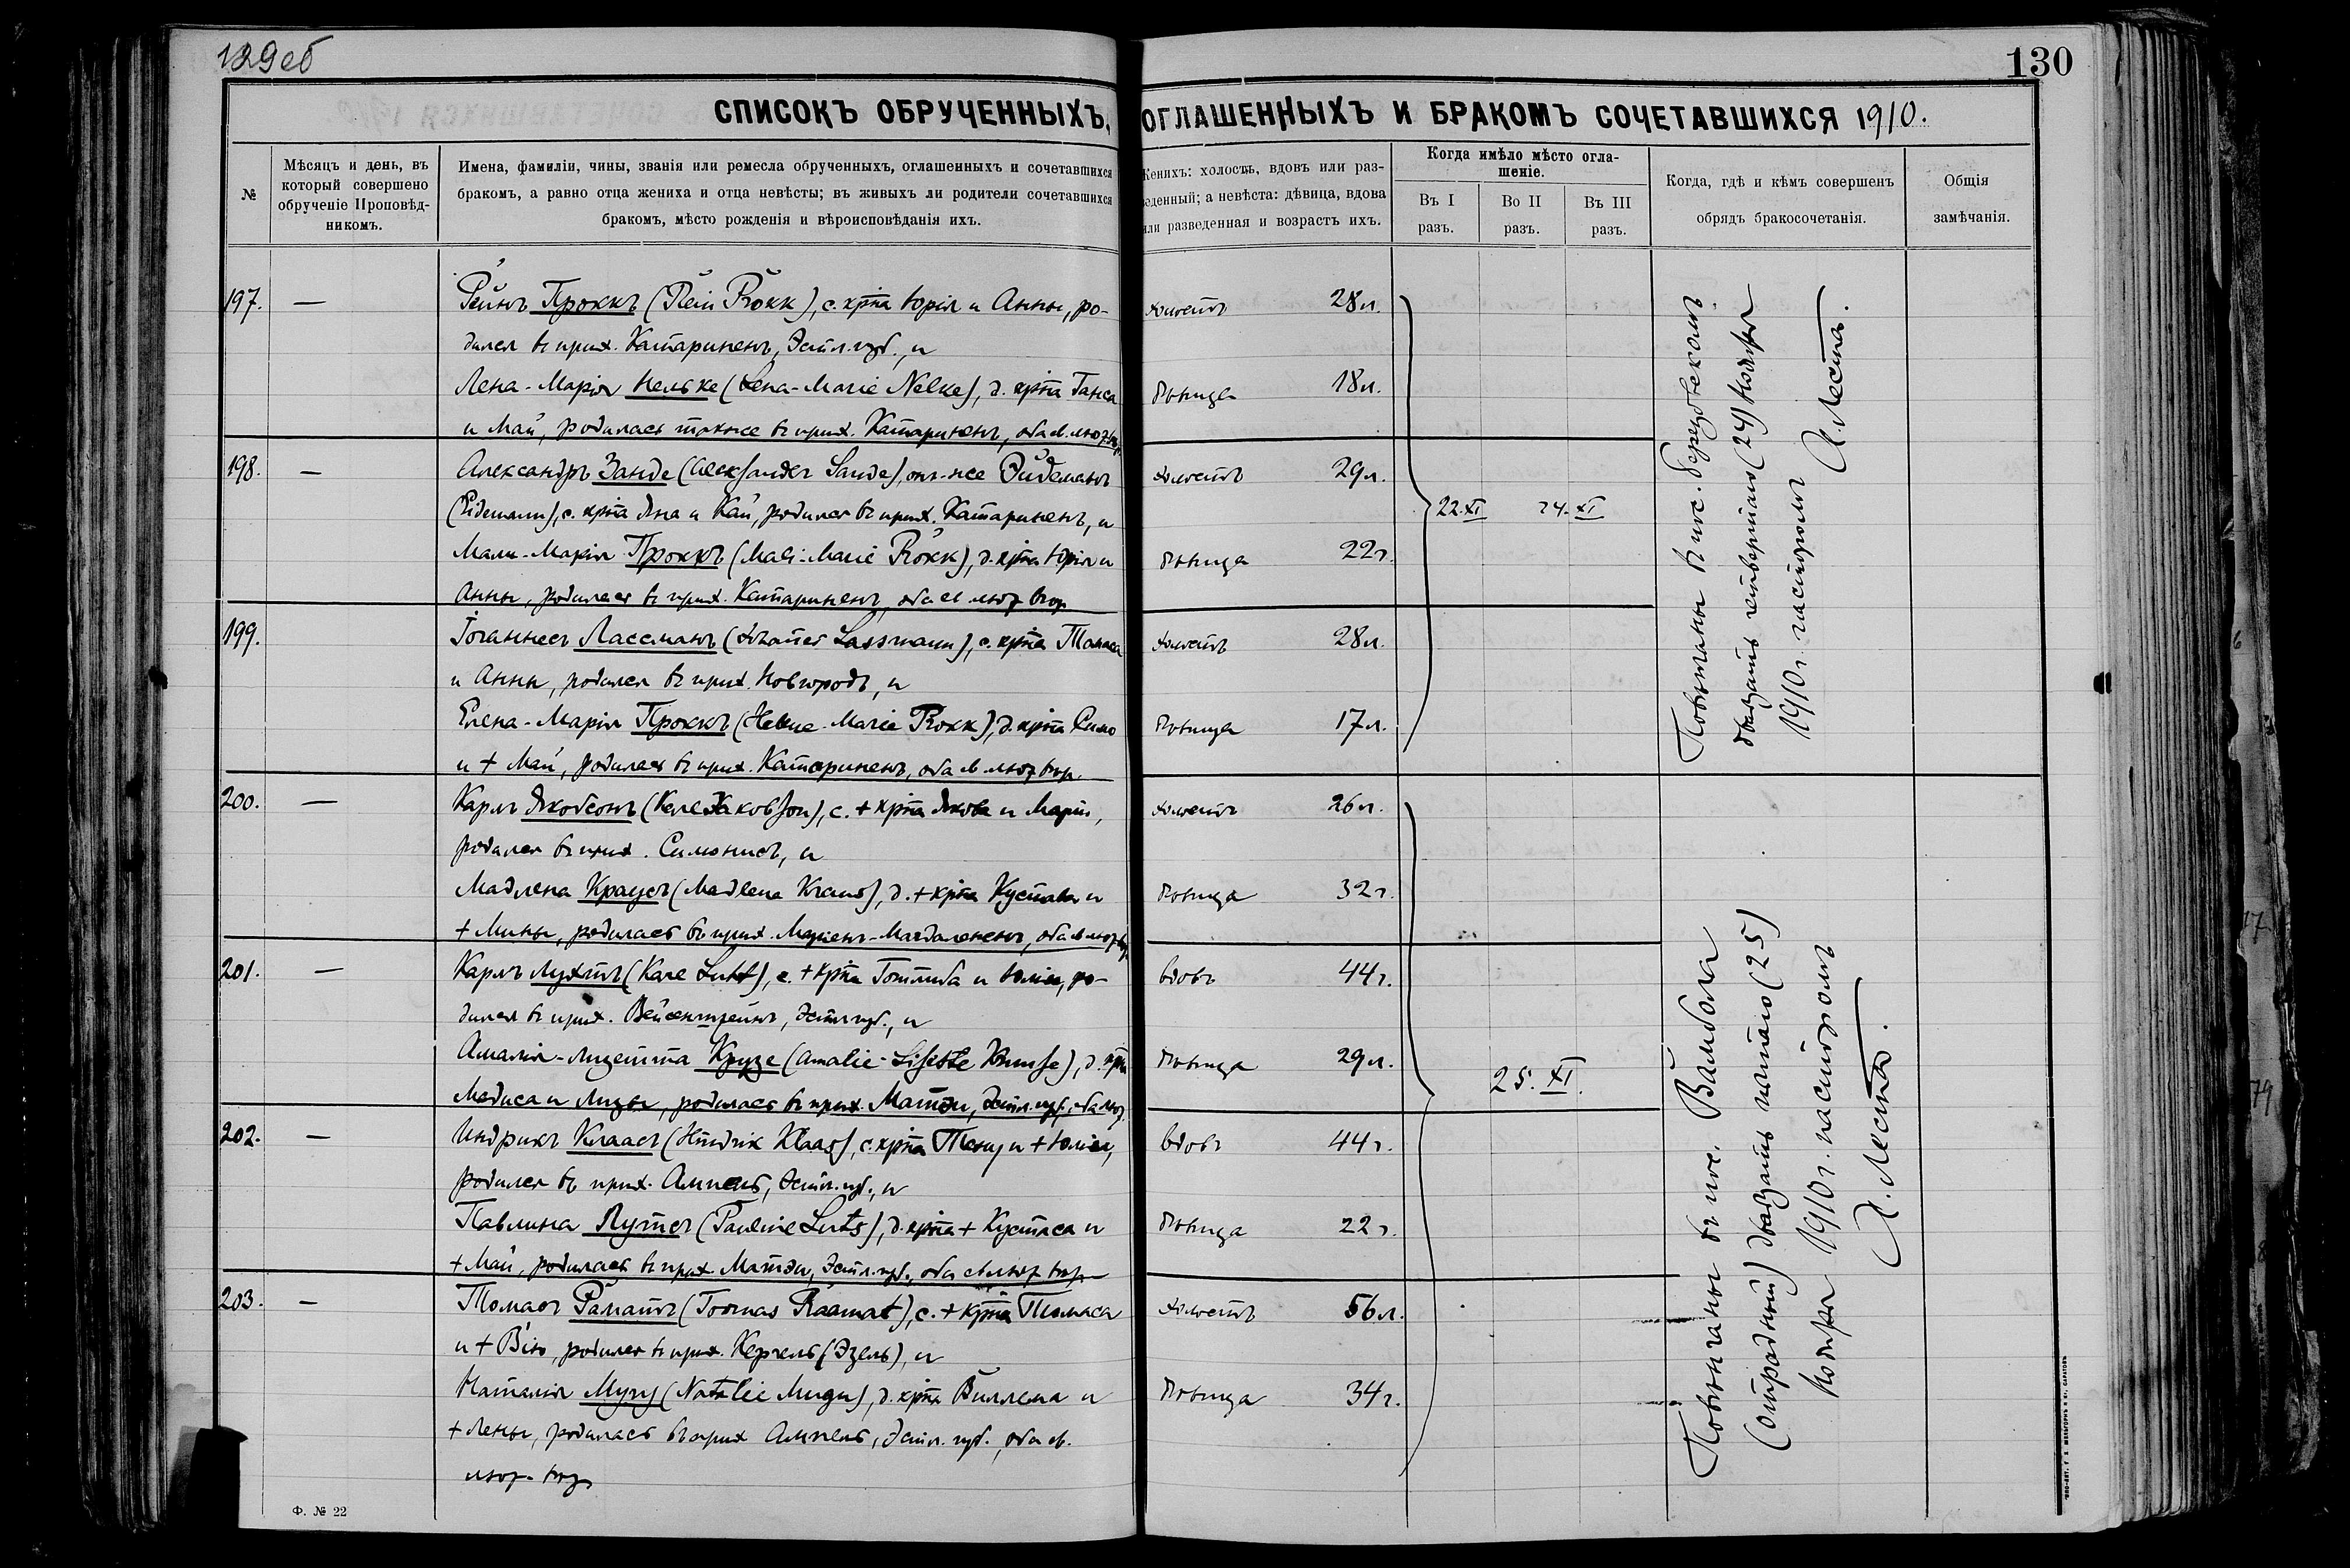 129об
130
СПИСОКЪ ОБРУЧЕННЫХЪ, ОГЛАШЕННЫХЪ И БРАКОМЪ СОЧЕТАВШИХСЯ 1910.
№
Мѣсяцъ и день, въ
который совершено
обрученіе Проповѣд-
никомъ.
Имена, фамиліи, чины, званія или ремесла обрученныхъ, оглашенныхъ и сочетавшихся
бракомъ, а равно отца жениха и отца невѣсты; въ живыхъ ли родители сочетавшихся
бракомъ, мѣсто рожденія и вѣроисповѣданія ихъ.
Женихъ: холостъ, вдовъ или раз-
веденный; а невѣста: дѣвица, вдова
или разведенная и возрастъ ихъ.
Когда имѣло мѣсто огла-
шеніе.
Въ I
разъ.
Во II
разъ.
Въ III
разъ.
Когда, гдѣ и кѣмъ совершенъ
обрядъ бракосочетанія.
Общія
замѣчанія.
197. — Рейнъ Проккъ (Rein Prokk), с. крта Юрія и Анны, ро- холостъ 28 л.
дился въ прих. Катариненъ, Эстл. губ., и
Лена-Марія Нельке (Lena-Marie Nelke), д. крта Ганса дѣвица 18 л.
и Май, родилась также въ прих. Катариненъ, оба ев. лютер.
198. — Александръ Занде (Aleksander Sande), онъ-же Эйдеманъ холостъ 29 л.
(Eidemann), с. крта Яна и Кай, родился въ прих. Катариненъ, и
22.XI 24.XI
Мали-Марія Проккъ (Mali-Marie Prokk), д. крта Юрія и дѣвица 22 г.
Анны, родилась въ прих. Катариненъ, оба ев. лютер. вѣр.
199. Іоганнесъ Лассманъ (Johannes Lassmann), с. крта Томаса холостъ 28 л.
и Анны, родился въ прих. Новгородъ, и
Елена-Марія Проккъ (Helene-Marie Prokk), д. крта Симо дѣвица 17 л.
и + Май, родилась въ прих. Катариненъ, оба ев. лютер. вѣр.
Повѣнчаны въ
двадцать четвертаго (24) Ноября
1910 г. пасторомъ А. Леста.
200. — Карлъ Якобсонъ (Karl Jakobson), с. + крта Якова и Маріи, холостъ 26 л.
родился въ прих. Симонисъ, и
Мадлена Краусъ (Madlena Kraus), д. + крта Кустава и дѣвица 32 г.
+ Мины, родилась въ прих. Маріенъ-Магдалененъ, оба ев. лютер. вѣр.
201. — Карлъ Лухтъ (Karl Luht), с. + крта Готлиба и Юліи, ро- вдовъ 44 г.
дился въ прих. Вейсенштейнъ, Эстл. губ., и
Амалія-Лизетта Крузе (Amalie-Lisette Kruuse), д. крта дѣвица 29 л.
25. XI.
Мадиса и Лизы, родилась въ прих. Маттэи, Эстл. губ., оба лют.
202. — Индрикъ Клаасъ (Hindrik Klaas), с. крта Тенну и + Юліи, вдовъ 44 г.
родился въ прих. Ампель, Эстл. губ., и
Павлина Лутсъ (Pauline Luts), д. крта + Кустаса и дѣвица 22 г.
+ Май, родилась въ прих. Маттэи, Эстл. губ., оба ев. лютер. вѣр.
203. — Томасъ Раматъ (Toomas Raamat), с. + крта Томаса холостъ 56 л.
и + Вію, родился въ прих. Кергель (Эзель), и
Наталія Мугу (Natalie Mugu), д. крта Виллема и дѣвица 34 г.
+ Лены, родилась въ прих. Ампель, Эстл. губ., оба ев.
лютер. вѣр.
Повѣнчаны въ пос. Вамбола
(Отрадный) двадцать пятаго (25)
Ноября 1910 г. пасторомъ
А. Леста.
Ф. № 22